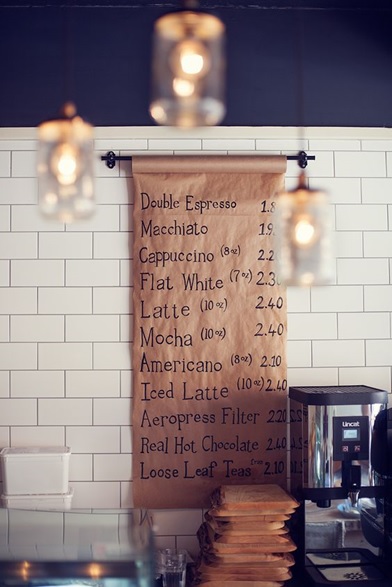 Double Espresso
Macchiato
Cappuccino (8oz)
Flat White (7oz)
Latte (10oz) 2.40
Mocha (10oz) 2.40
Americano (8oz) 2.10
Iced Latte (10oz) 2.40
Aeropress Filter 2.20
Real Hot Chocolate 2.40
Loose Leaf Teas from 2.10
Lincat